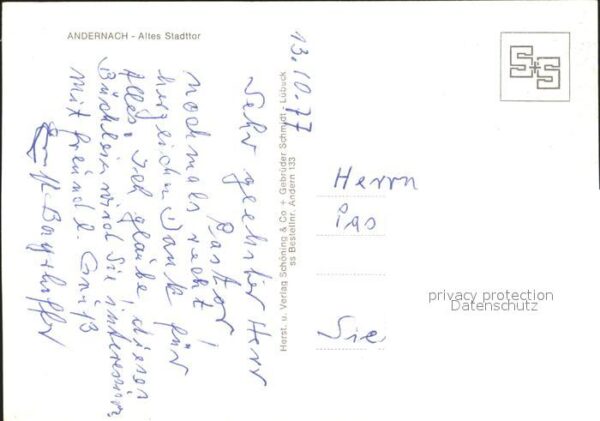 ANDERNACH - Altes Stadttor
13.10.77
Sehr geehrter Herr
Pastor!
Nochmals recht
herzlichen Dank für
Alles. Ich glaube, dieses
Büchlein wird Sie interessieren
Mit freundl. Gruß
Herst. u. Verlag Schöning & Co + Gebrüder Schmidt - Lübeck
ss Bestellnr. Andern 133
S+S
Herrn
Pas
Sie
privacy protection
Datenschutz